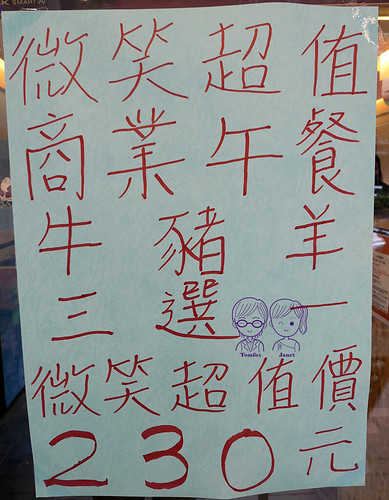 SMART
微笑超值
商業午餐
牛豬羊
三選一
Tomfox Janet
微笑超值價
230元